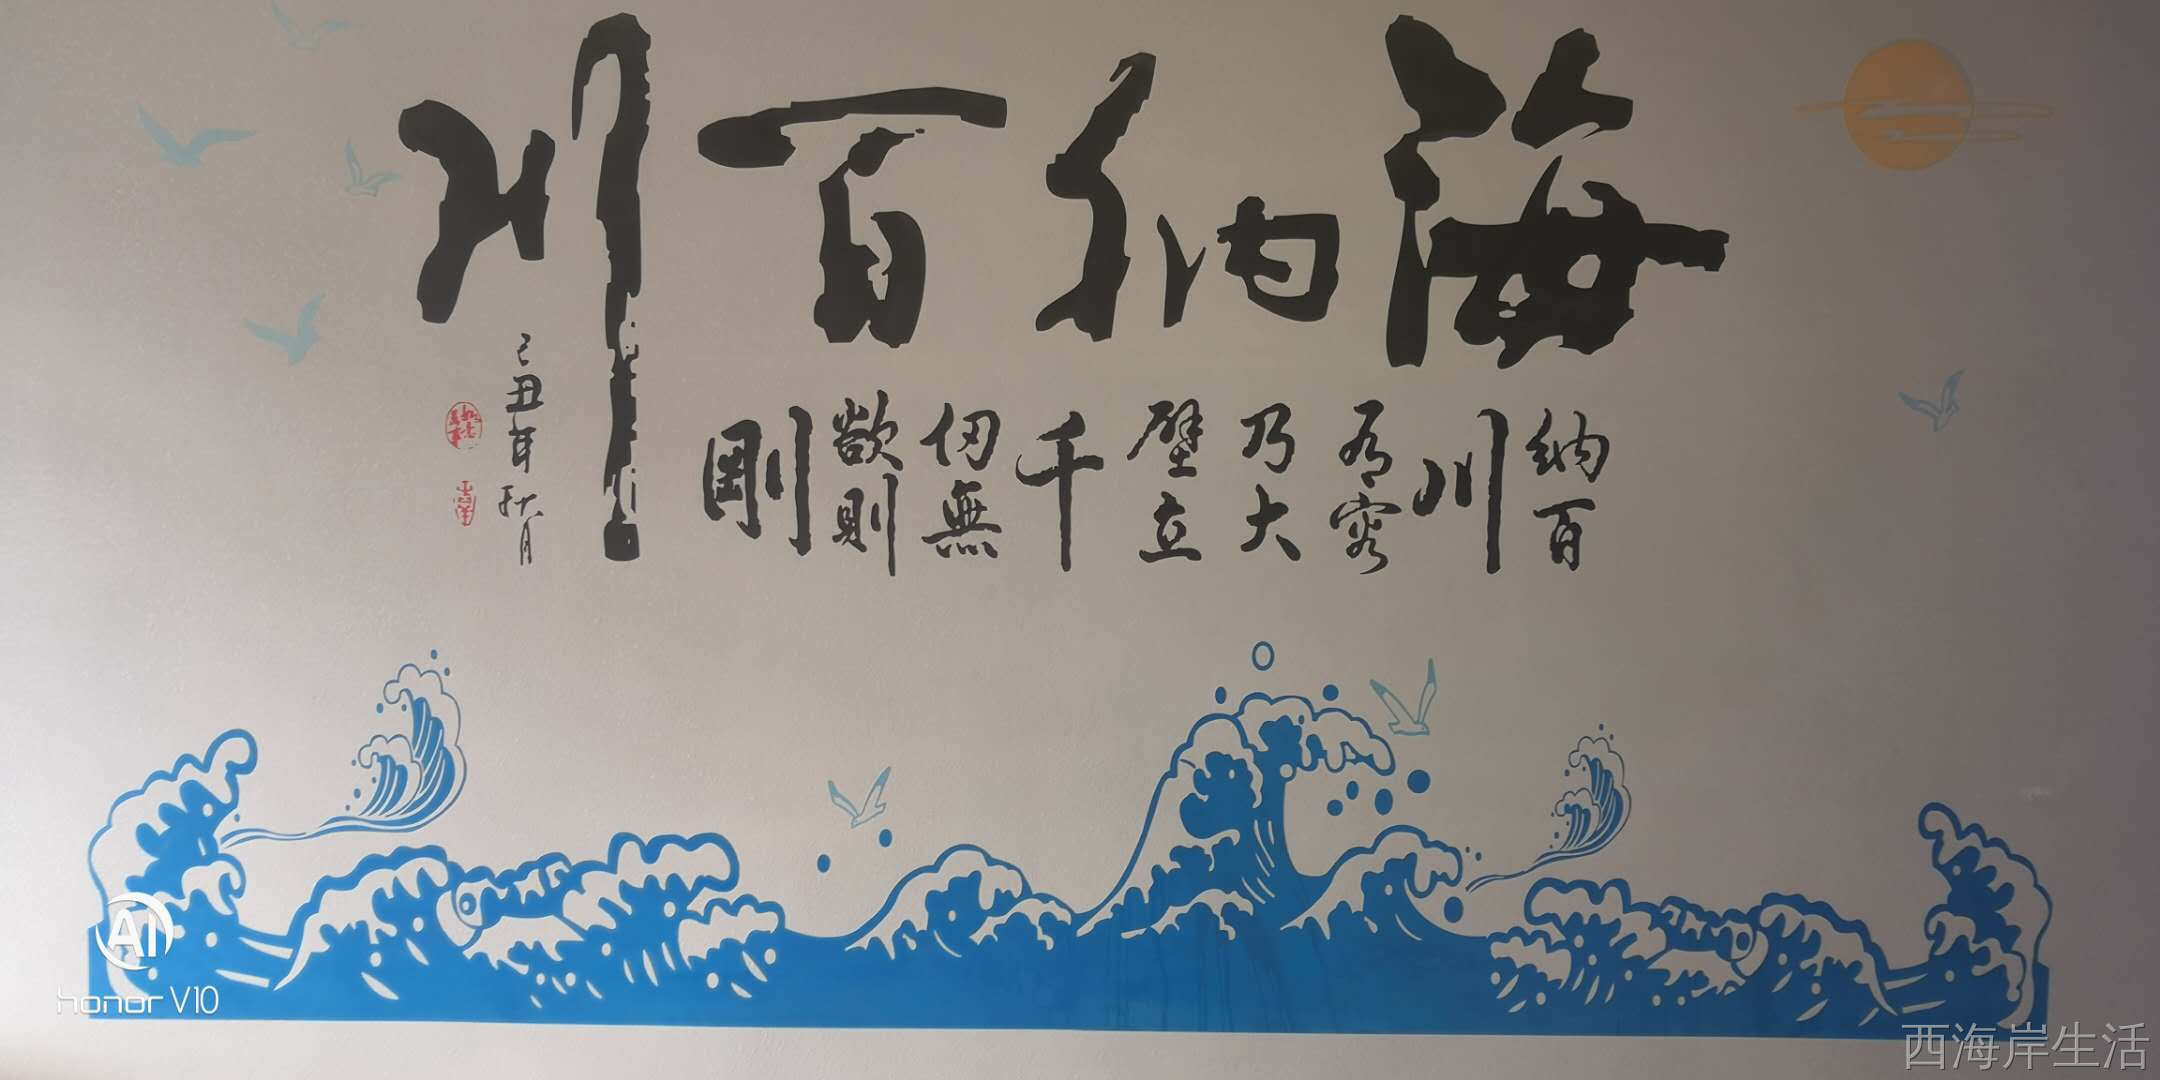 海纳百川
纳百
川
有容
乃大
壁立
千
仞無
欲則
剛
己丑年秋月
AI
honor V10
西海岸生活